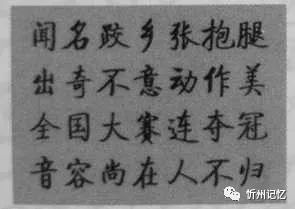 闻名跤乡张抱腿
出奇不意动作美
全国大赛连夺冠
音容尚在人不归
忻州记忆